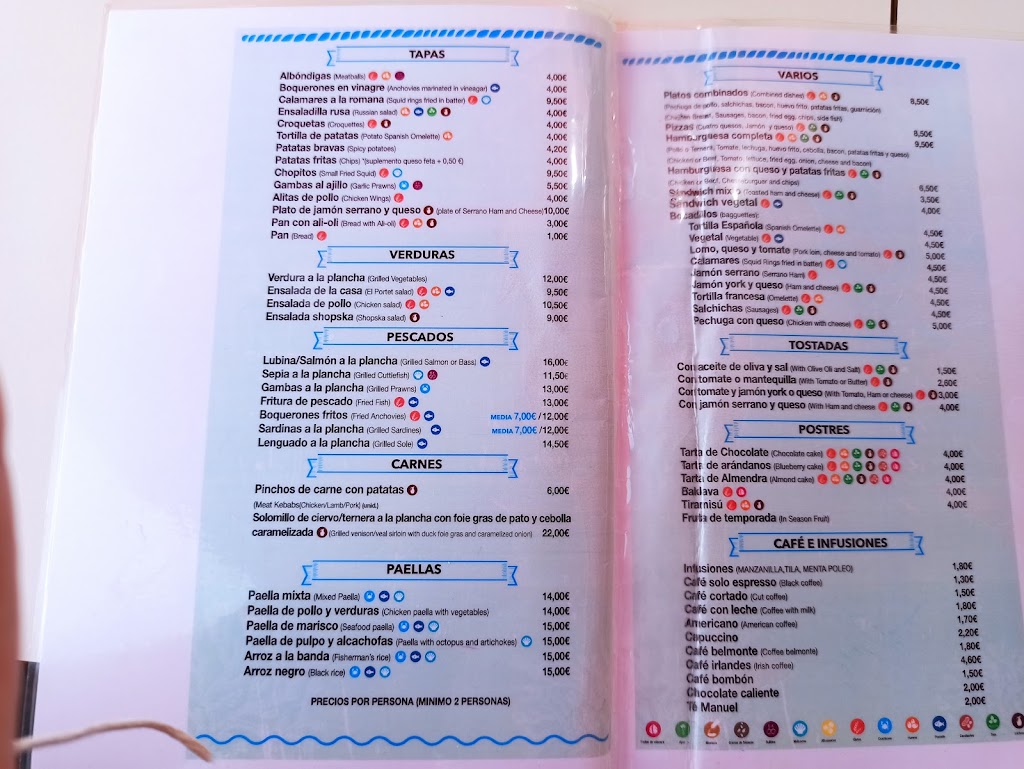 TAPAS
Albóndigas (Meatballs) 4,00€
Boquerones en vinagre (Anchovies marinated in vineagar) 4,00€
Calamares a la romana (Squid rings fried in batter) 9,50€
Ensaladilla rusa (Russian salad) 4,00€
Croquetas (Croquettes) 4,00€
Tortilla de patatas (Potato Spanish Omelette) 4,00€
Patatas bravas (Spicy potatoes) 4,20€
Patatas fritas (Chips) *(suplemento queso feta + 0,50 €) 4,00€
Chopitos (Small Fried Squid) 9,50€
Gambas al ajillo (Garlic Prawns) 5,50€
Alitas de pollo (Chicken Wings) 4,00€
Plato de jamón serrano y queso (plate of Serrano Ham and Cheese) 10,00€
Pan con ali-oli (Bread with Ali-oli) 3,00€
Pan (Bread) 1,00€
VERDURAS
Verdura a la plancha (Grilled Vegetables) 12,00€
Ensalada de la casa (El Portet salad) 9,50€
Ensalada de pollo (Chicken salad) 10,50€
Ensalada shopska (Shopska salad) 9,00€
PESCADOS
Lubina/Salmón a la plancha (Grilled Salmon or Bass) 16,00€
Sepia a la plancha (Grilled Cuttlefish) 11,50€
Gambas a la plancha (Grilled Prawns) 13,00€
Fritura de pescado (Fried Fish) 13,00€
Boquerones fritos (Fried Anchovies) MEDIA 7,00€ /12,00€
Sardinas a la plancha (Grilled Sardines) MEDIA 7,00€ /12,00€
Lenguado a la plancha (Grilled Sole) 14,50€
CARNES
Pinchos de carne con patatas 6,00€
(Meat Kebabs(Chicken/Lamb/Pork) (unid.)
Solomillo de ciervo/ternera a la plancha con foie gras de pato y cebolla
caramelizada (Grilled venison/veal sirloin with duck foie gras and caramelized onion) 22,00€
PAELLAS
Paella mixta (Mixed Paella) 14,00€
Paella de pollo y verduras (Chicken paella with vegetables) 14,00€
Paella de marisco (Seafood paella) 15,00€
Paella de pulpo y alcachofas (Paella with octopus and artichokes) 15,00€
Arroz a la banda (Fisherman's rice) 15,00€
Arroz negro (Black rice) 15,00€
PRECIOS POR PERSONA (MINIMO 2 PERSONAS)
VARIOS
Platos combinados (Combined dishes) 8,50€
(Pechuga de pollo, salchichas, bacon, huevo frito, patatas fritas, guarnición)
(Chicken Breast, Sausages, bacon, fried egg, chips, side fish)
Pizzas (Cuatro quesos, Jamón y queso) 8,50€
Hamburguesa completa 9,50€
(Pollo o Ternera, Tomate, lechuga, huevo frito, cebolla, bacon, patatas fritas y queso)
(Chicken or Beef, Tomato, lettuce, fried egg, onion, cheese and bacon)
Hamburguesa con queso y patatas fritas 6,50€
(Chicken or Beef, Cheeseburguer and chips)
Sandwich mixto (Toasted ham and cheese) 3,50€
Sandwich vegetal 4,00€
Bocadillos (baguettes):
Tortilla Española (Spanish Omelette) 4,50€
Vegetal (Vegetable) 4,50€
Lomo, queso y tomate (Pork loin, cheese and tomato) 5,00€
Calamares (Squid Rings fried in batter) 4,50€
Jamón serrano (Serrano Ham) 4,50€
Jamón york y queso (Ham and cheese) 4,50€
Tortilla francesa (Omelette) 4,50€
Salchichas (Sausages) 4,50€
Pechuga con queso (Chicken with cheese) 5,00€
TOSTADAS
Con aceite de oliva y sal (With Olive Oli and Salt) 1,50€
Con tomate o mantequilla (With Tomato or Butter) 2,60€
Con tomate y jamón york o queso (With Tomato, Ham or cheese) 3,00€
Con jamón serrano y queso (With Ham and cheese 4,00€
POSTRES
Tarta de Chocolate (Chocolate cake) 4,00€
Tarta de arándanos (Blueberry cake) 4,00€
Tarta de Almendra (Almond cake) 4,00€
Baklava 4,00€
Tiramisú 4,00€
Fruta de temporada (In Season Fruit)
CAFÉ E INFUSIONES
Infusiones (MANZANILLA,TILA, MENTA POLEO) 1,80€
Café solo espresso (Black coffee) 1,30€
Café cortado (Cut coffee) 1,50€
Café con leche (Coffee with milk) 1,80€
Americano (American coffee) 1,70€
Capuccino 2,20€
Café belmonte (Coffee belmonte) 1,80€
Café irlandes (Irish coffee) 4,60€
Café bombón 1,50€
Chocolate caliente 2,00€
Té Manuel 2,00€